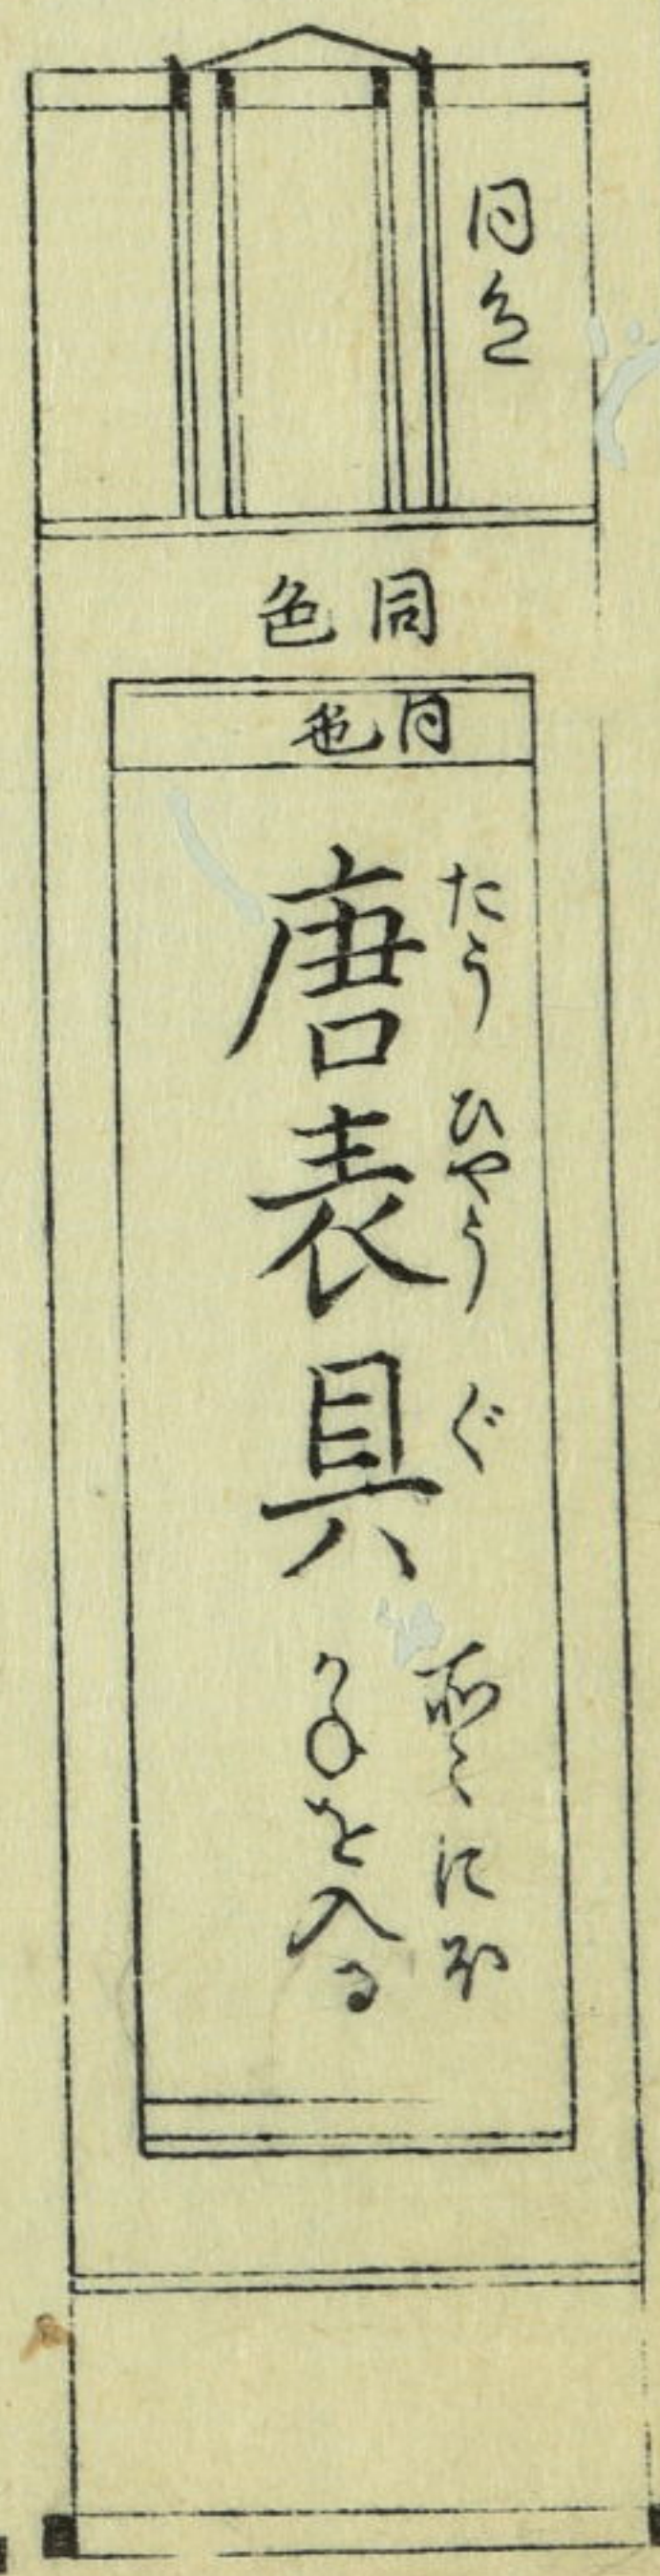 同色
同色
同色
唐表具
たうひやうぐ
所〻にほ
そかねを入る